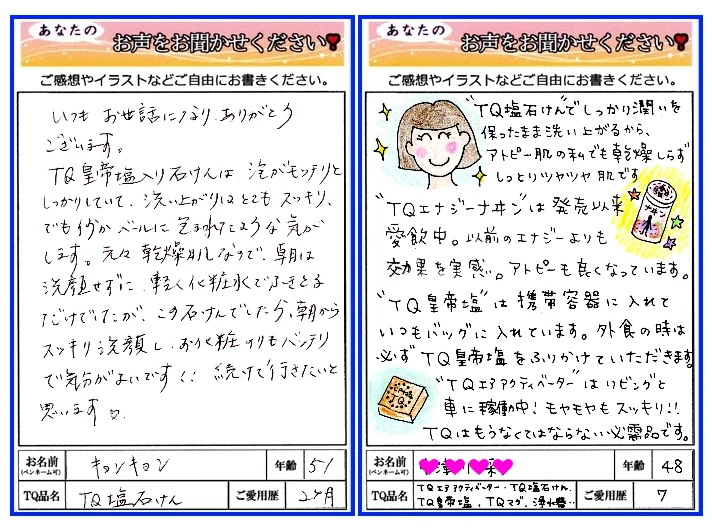 あなたの
お声をお聞かせください
ご感想やイラストなどご自由にお書きください。
いつも お世話になり、ありがとう
ございます。
TQ皇帝塩入り石けんは 泡がモッチリと
しっかりしていて、洗い上がりはとても スッキリ、
でも何か ベールに 包まれてたような 気が
します。元々 乾燥肌なので、朝は
洗顔せずに、軽く化粧水でふきとる
だけでしたが、この石けんでしたら、朝から
スッキリ洗顔し、お化粧のりもバッチリ
で気分がよいです。 続けて行きたいと
思います
お名前
(ペンネーム可)
キョンキョン
年齢
51
TQ品名
TQ塩石けん
ご愛用歴
2ヶ月
あなたの
お声をお聞かせください
ご感想やイラストなどご自由にお書きください。
"TQ塩石けん"でしっかり潤いを
保ったまま洗い上がるから、
アトピー肌の私でも乾燥しらず
しっとりツヤツヤ肌です
"TQエナジーナヰン"は発売以来
愛飲中。以前のエナジーよりも
効果を実感。アトピーも良くなっています。
"TQ皇帝塩"は携帯容器に入れて
いつもバッグに入れています。外食の時は
必ずTQ皇帝塩をふりかけていただきます。
"TQエアアクティベーター"はリビングと
車に稼働中!モヤモヤもスッキリ!!
TQはもうなくてはならない必需品です。
ナヰン
TQ
お名前
(ペンネーム可)
年齢
48
TQ品名
TQエアアクティベーター・TQ塩石けん、
TQ皇帝塩、TQマグ、浄水器…
ご愛用歴
7